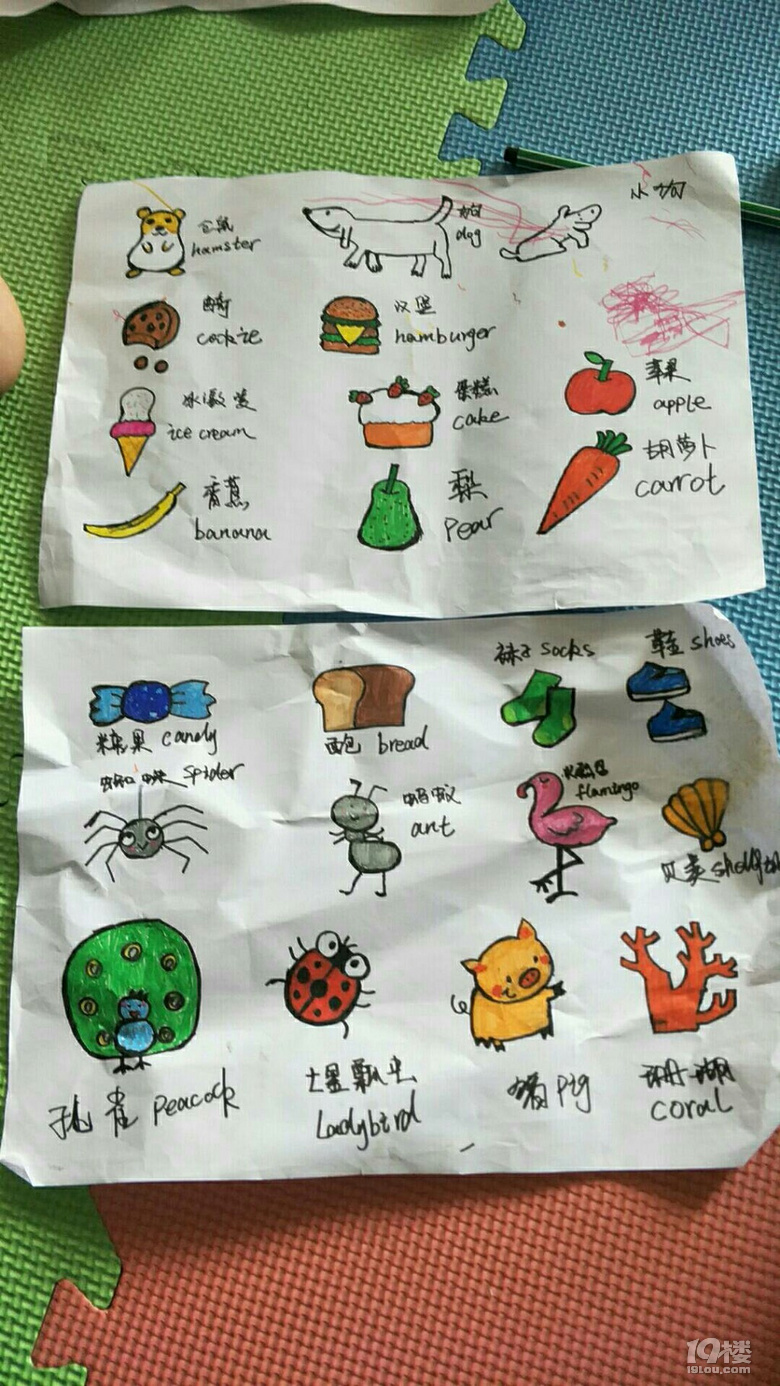 仓鼠
hamster
狗
dog
小狗
曲奇
cookie
汉堡
hamburger
苹果
apple
冰激凌
ice cream
蛋糕
cake
胡萝卜
carrot
香蕉
banana
梨
pear
糖果 candy
面包 bread
袜子 socks
鞋 shoes
蜘蛛 spider
蚂蚁
ant
火烈鸟
flamingo
贝类
孔雀 peacock
七星瓢虫
Ladybird
猪 pig
珊瑚
coral
19楼
19lou.com